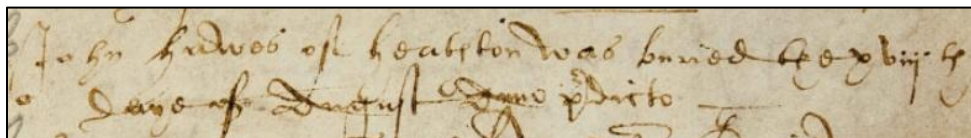 John hawes of heatston was buried the xviijth
daye of August Anno pdicto